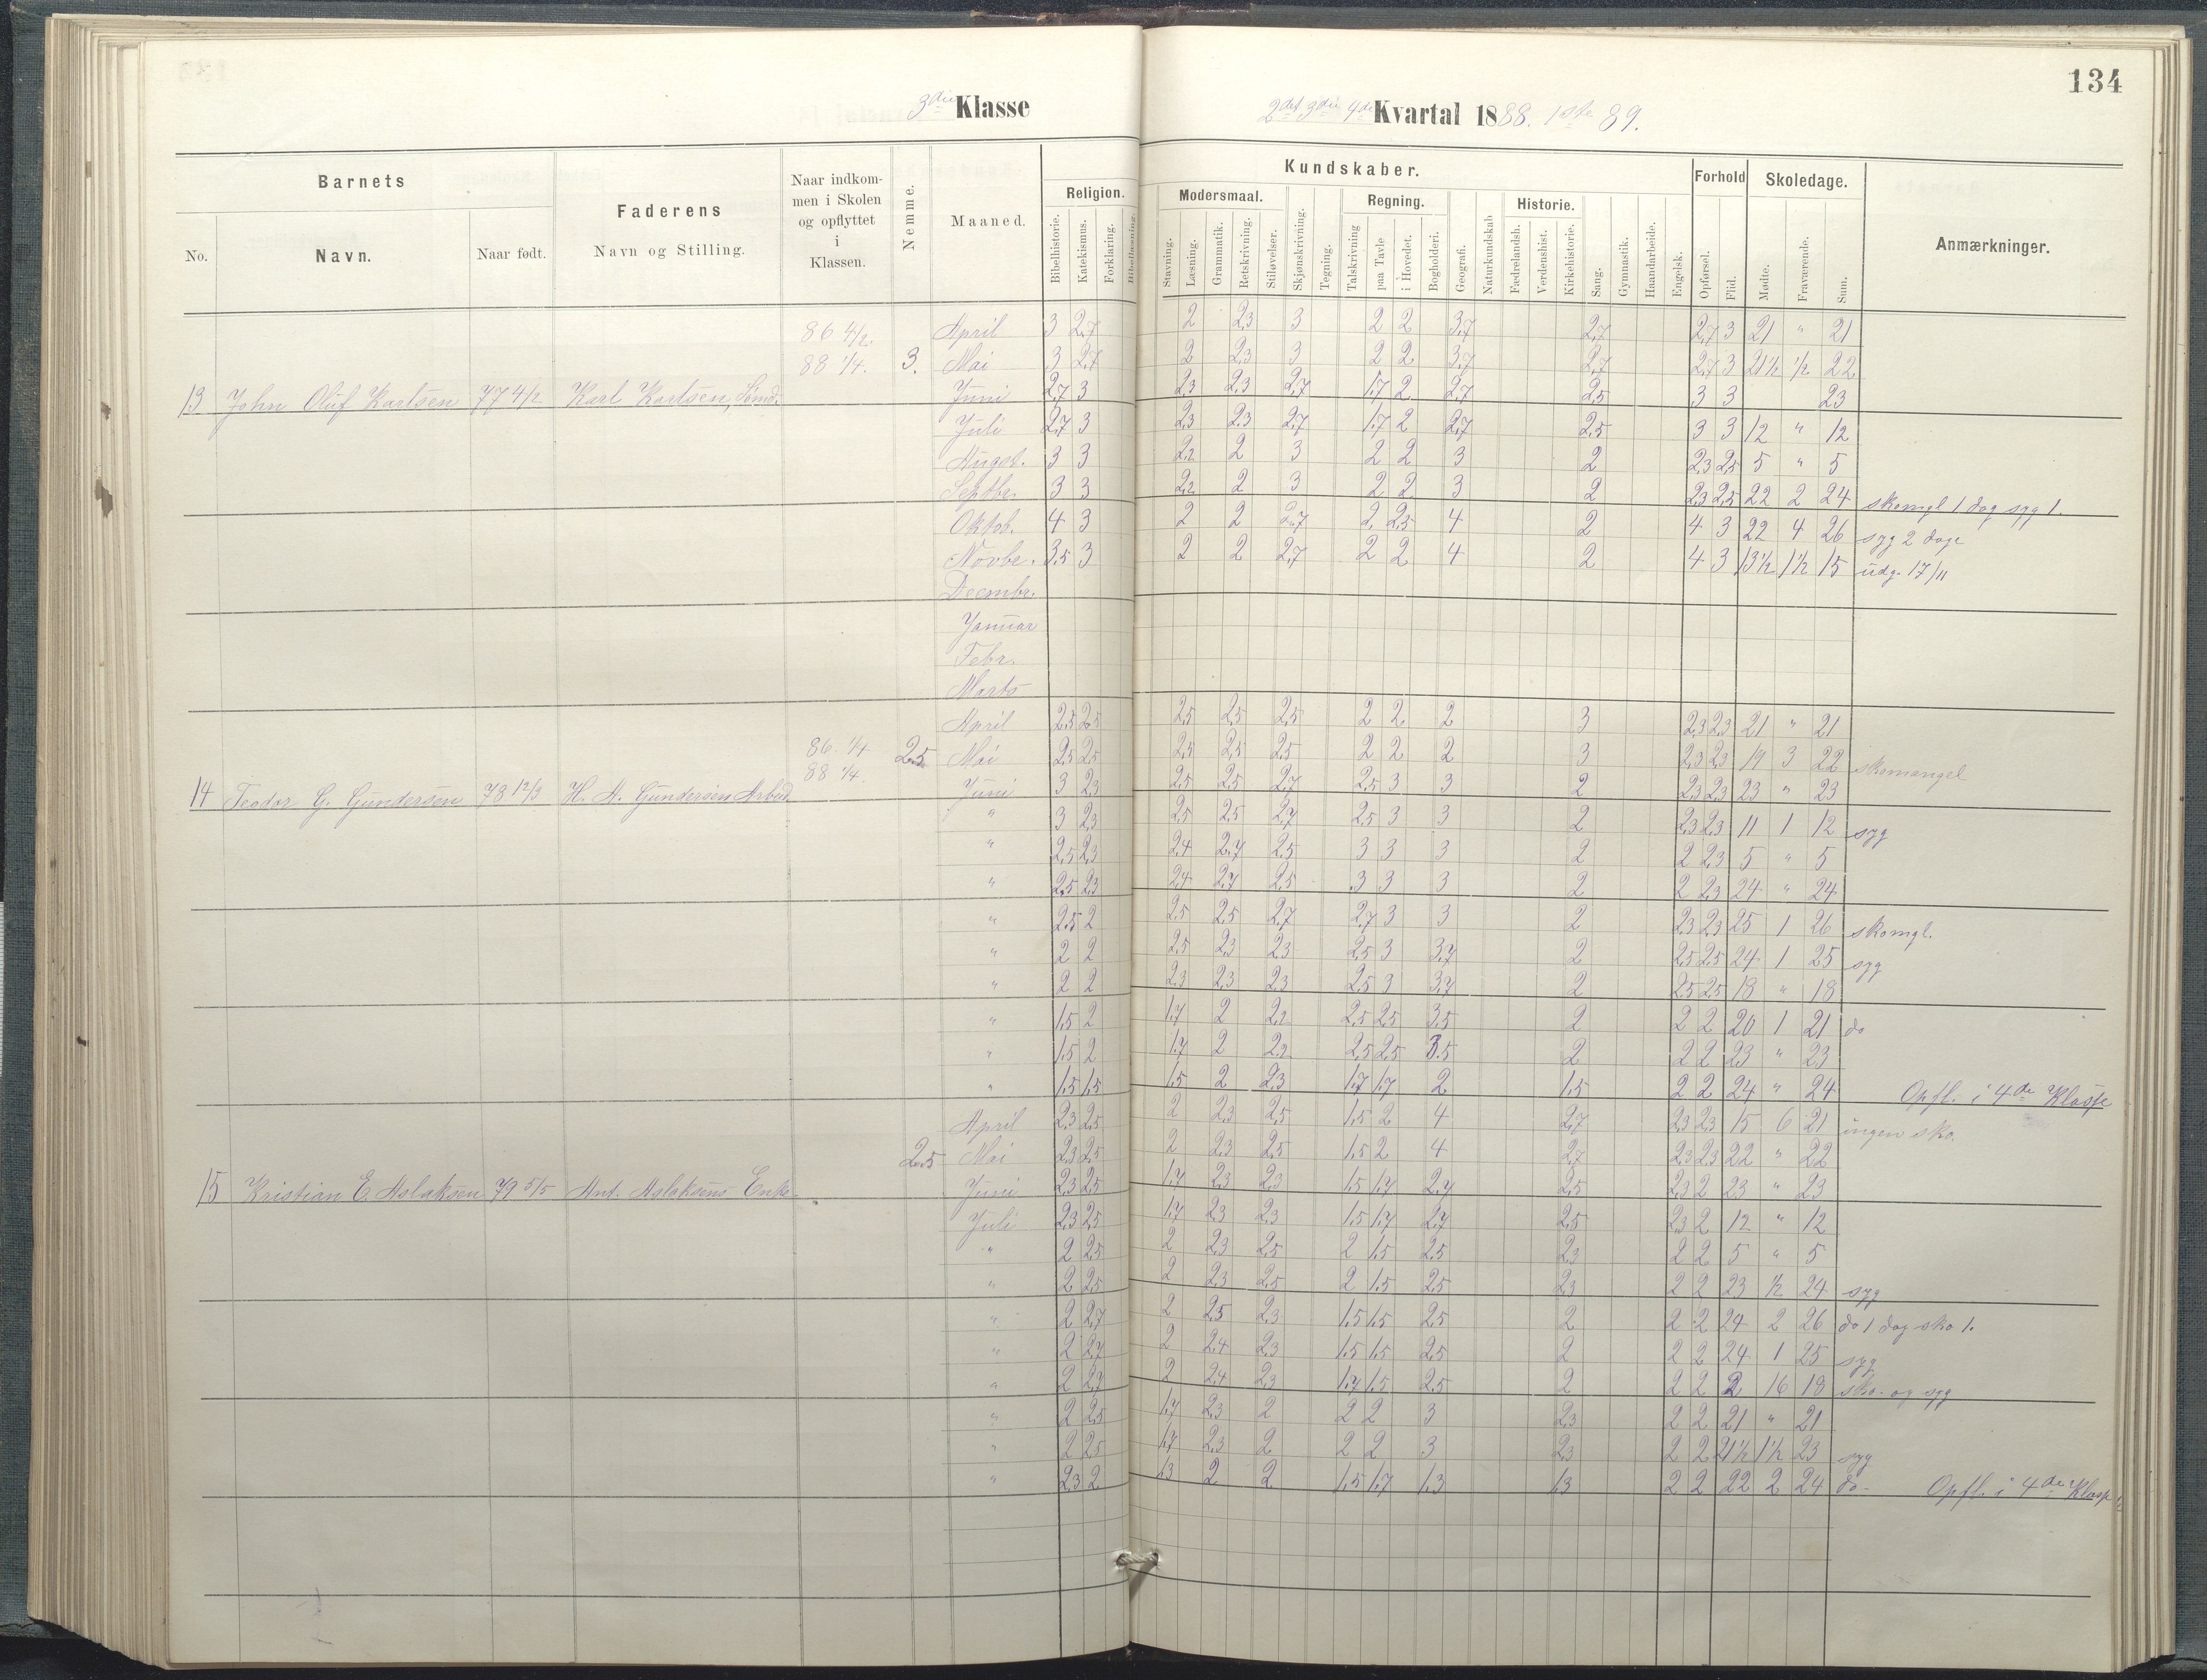 134
3die Klasse 2det 3die 4de Kvartal 1888. 1ste 89.
Barnets
Faderens
Naar indkommen i Skolen og opflyttet i Klassen.
Nemme.
Maaned.
Kundskaber.
Forhold
Skoledage.
Anmærkninger.
No. Navn. Naar født. Navn og Stilling.
Religion. Modersmaal. Regning. Historie.
Bibelhistorie. Katekismus. Forklaring. Bibellæsning. Stavning. Læsning. Grammatik. Retskrivning. Stiløvelser. Skjønskrivning. Tegning. Talskrivning paa Tavle i Hovedet. Bogholderi. Geografi. Naturkundskab Fædrelandsh. Verdenshist. Kirkehistorie. Sang. Gymnastik. Haandarbeide. Engelsk. Opførsel. Flid. Mødte. Fraværende. Sum.
86 4/2. April 3 2,7 2 2,3 3 2 2 3,7 2,7 2,7 3 21 " 21
88 1/4. 3. Mai 3 2,7 2 2,3 3 2 2 3,7 2,7 2,7 3 21½ ½ 22
13 John Oluf Karlsen 77 4/2 Karl Karlsen, Sømd. Juni 2,7 3 2,3 2,3 2,7 1,7 2 2,7 2,5 3 3 23
Juli 2,7 3 2,3 2,3 2,7 1,7 2 2,7 2,5 3 3 12 " 12
Augst. 3 3 2,2 2 3 2 2 3 2 2,3 2,5 5 " 5
Septbr. 3 3 2,2 2 3 2 2 3 2 2,3 2,5 22 2 24 skomgl 1 dag syg 1.
Oktob. 4 3 2 2 2,7 2, 2,5 4 2 4 3 22 4 26 syg 2 dage
Novbr. 3,5 3 2 2 2,7 2 2 4 2 4 3 13½ 1½ 15 udg. 17/11
Decmbr.
Januar
Febr.
Marts
April 2,5 2,5 2,5 2,5 2,5 2 2 2 3 2,3 2,3 21 " 21
86. 1/4 2,5 Mai 2,5 2,5 2,5 2,5 2,5 2 2 2 3 2,3 2,3 19 3 22 skomangel
88 1/4.
14 Teodor G. Gundersen 78 12/3 H. A. Gundersen Arbeid. Juni 3 2,3 2,5 2,5 2,7 2,5 3 3 2 2,3 2,3 23 " 23
" 3 2,3 2,5 2,5 2,7 2,5 3 3 2 2,3 2,3 11 1 12 syg
" 2,5 2,3 2,4 2,7 2,5 3 3 3 2 2 2,3 5 " 5
" 2,5 2,3 2,4 2,7 2,5 3 3 3 2 2 2,3 24 " 24
" 2,5 2 2,5 2,5 2,7 2,7 3 3 2 2,3 2,3 25 1 26 skomgl.
" 2 2 2,5 2,3 2,3 2,5 3 3,7 2 2,5 2,5 24 1 25 syg
" 2 2 2,3 2,3 2,3 2,5 3 3,7 2 2,5 2,5 18 " 18
" 1,5 2 1,7 2 2,2 2,5 2,5 3,5 2 2 2 20 1 21 do
" 1,5 2 1,7 2 2,2 2,5 2,5 3,5 2 2 2 23 " 23
" 1,5 1,5 1,5 2 2,3 1,7 1,7 2 1,5 2 2 24 " 24 Opfl. i 4de Klasse
April 2,3 2,5 2 2,3 2,5 1,5 2 4 2,7 2,3 2,3 15 6 21 ingen sko.
2,5 Mai 2,3 2,5 2 2,3 2,5 1,5 2 4 2,7 2,3 2,3 22 " 22
15 Kristian E. Aslaksen 79 5/5 Ant. Aslaksens Enke. Juni 2,3 2,5 1,7 2,3 2,3 1,5 1,7 2,7 2,5 2,3 2 23 " 23
Juli 2,3 2,5 1,7 2,3 2,3 1,5 1,7 2,7 2,5 2,3 2 12 " 12
" 2 2,5 2 2,3 2,5 2 1,5 2,5 2,3 2 2 5 " 5
" 2 2,5 2 2,3 2,5 2 1,5 2,5 2,3 2 2 23 ½ 24 syg
" 2 2,7 2 2,5 2,3 1,5 1,5 2,5 2 2 2 24 2 26 do 1 dag sko 1.
" 2 2,7 2 2,4 2,3 1,5 1,5 2,5 2 2 2 24 1 25 syg
" 2 2,7 2 2,4 2,3 1,7 1,5 2,5 2 2 2 2 16 18 sko- og syg
" 2 2,5 1,7 2,3 2 2 2 3 2,3 2 2 21 " 21
" 2 2,5 1,7 2,3 2 2 2 3 2,3 2 2 21½ 1½ 23 syg
" 2,3 2 1,3 2 2 1,5 1,7 1,3 1,3 2 2 22 2 24 do- Opfl. i 4de Klasse